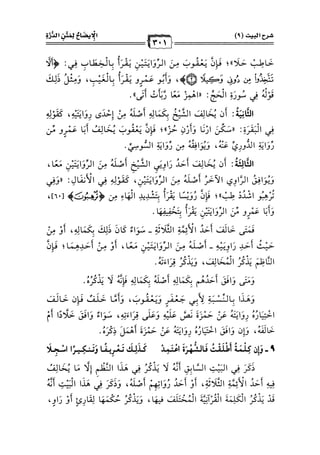 شرح البيت (٩)
الإيضاح لِمَتْنِ الدُّرَّة
٣٠١
خِطَابَ حَلَا»؛ فَإِنَّ يَعْقُوبَ مِنَ الرِّوَايَتَيْنِ يَقْرَأُ بِالْخِطَابِ فِي: ﴿أَلَّا
تَتَّخِذُوا مِن دُونِي وَكِيلًا ۝﴾، وَأَبُو عَمْرٍو يَقْرَأُ بِالْغَيْبِ، وَمِثْلُ ذَلِكَ
قَوْلُهُ فِي سُورَةِ الْحَجِّ: «اهْمِزْ مَعًا رَبَأَتْ أَتَى».
الثَّانِيَةُ: أَن يُخَالِفَ الشَّيْخُ بِكَمَالِهِ أَصْلَهُ مِنْ إِحْدَى رِوَايَتَيْهِ، كَقَوْلِهِ
فِي الْبَقَرَةِ: «سَكِّنَ ارْنَا وَأَرْنِ حُزْ»؛ فَإِنَّ يَعْقُوبَ يُخَالِفُ أَبَا عَمْرٍو مِّن
رِّوَايَةِ الدُّورِيِّ عَنْهُ، وَيُوَافِقُهُ مِن رِّوَايَةِ السُّوسِيِّ.
الثَّالِثَةُ: أَن يُخَالِفَ أَحَدُ رَاوِيَيِ الشَّيْخِ أَصْلَهُ مِنَ الرِّوَايَتَيْنِ مَعًا،
وَيُوَافِقَ الرَّاوِي الْآخَرُ الْأَصْلَ مِنَ الرِّوَايَتَيْنِ، كَقَوْلِهِ فِي الْأَنْفَالِ: «وَفِي
تُرْهِبُوا اشْدُدْ طِبْ»؛ فَإِنَّ رُوَيْسًا يَقْرَأُ بِتَشْدِيدِ الْهَاءِ مِن ﴿تُرْهِبُونَ﴾ [٦٠]،
وَأَبَا عَمْرٍو مِّنَ الرِّوَايَتَيْنِ يَقْرَأُ بِتَخْفِيفِهَا.
فَمَتَى خَالَفَ أَحَدُ الْأَئِمَّةِ الثَّلَاثَةِ أَصْلَهُ - سَوَاءٌ كَانَ ذَلِكَ بِكَمَالِهِ، أَوْ مِنْ
حَيْثُ أَحَدِ رَاوِيَيْهِ - أَصْلَهُ مِنَ الرِّوَايَتَيْنِ مَعًا، أَوْ مِنْ إِحْدَاهُمَا؛ فَإِنَّ
النَّاظِمَ يَذْكُرُ الْمُخَالِفَ، وَيَذْكُرُ قِرَاءَتَهُ.
وَمَتَى وَافَقَ أَحَدُهُمْ أَصْلَهُ بِكَمَالِهِ فَإِنَّهُ لَا يَذْكُرُهُ.
وَهَذَا بِالنِّسْبَةِ لِأَبِي جَعْفَرٍ وَيَعْقُوبَ، وَأَمَّا خَلَفٌ فَإِنْ خَالَفَ
اخْتِيَارُهُ رِوَايَتَهُ عَنْ حَمْزَةَ نَصَّ عَلَيْهِ وَعَلَى قِرَاءَتِهِ، سَوَاءٌ وَافَقَ خَلَّادًا أَمْ
خَالَفَهُ، وَإِن وَافَقَ اخْتِيَارُهُ رِوَايَتَهُ عَنْ حَمْزَةَ أَهْمَلَ ذِكْرَهُ.
٩ - وَإِن كَلِمَةٌ أَطْلَقْتُ فَالشُّهْرَةَ اعْتَمِدْ كَذَلِكَ تَعْرِيفًا وَتَنْكِيرًا اسْجِلَا
ذَكَرَ فِي الْبَيْتِ السَّابِقِ أَنَّهُ لَا يَذْكُرُ فِي هَذَا النَّظْمِ إِلَّا مَا يُخَالِفُ
فِيهِ أَحَدُ الْأَئِمَّةِ الثَّلَاثَةِ، أَوْ أَحَدُ رُوَاتِهِمْ أَصْلَهُ، وَذَكَرَ فِي هَذَا الْبَيْتِ أَنَّهُ
قَدْ يَذْكُرُ الْكَلِمَةَ الْقُرْآنِيَّةَ الْمُخْتَلَفَ فِيهَا، وَيَذْكُرُ حُكْمَهَا لِقَارِئٍ أَوْ رَاوٍ،